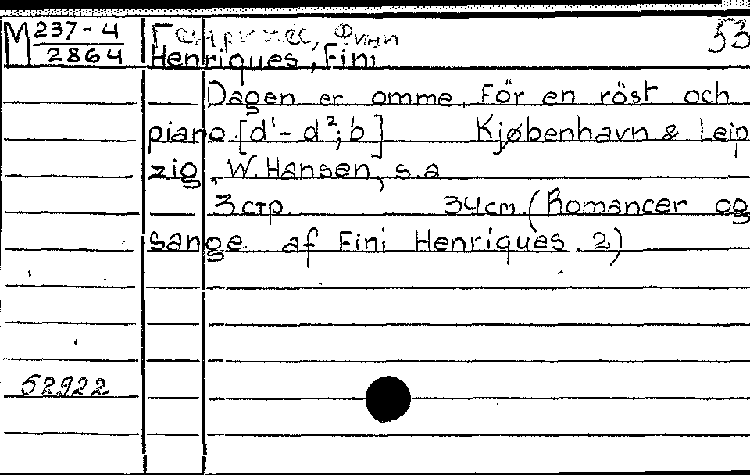 М 237-4 Генрикес, Финн 53
2864 Henriques, Fini
Dagen er omme. För en röst och
piano. [d¹- d²; b] Kjøbenhavn & Leip
zig, W. Hansen, s.a.
3 стр. 34cm. (Romancer og
sange af Fini Henriques. 2)
52922